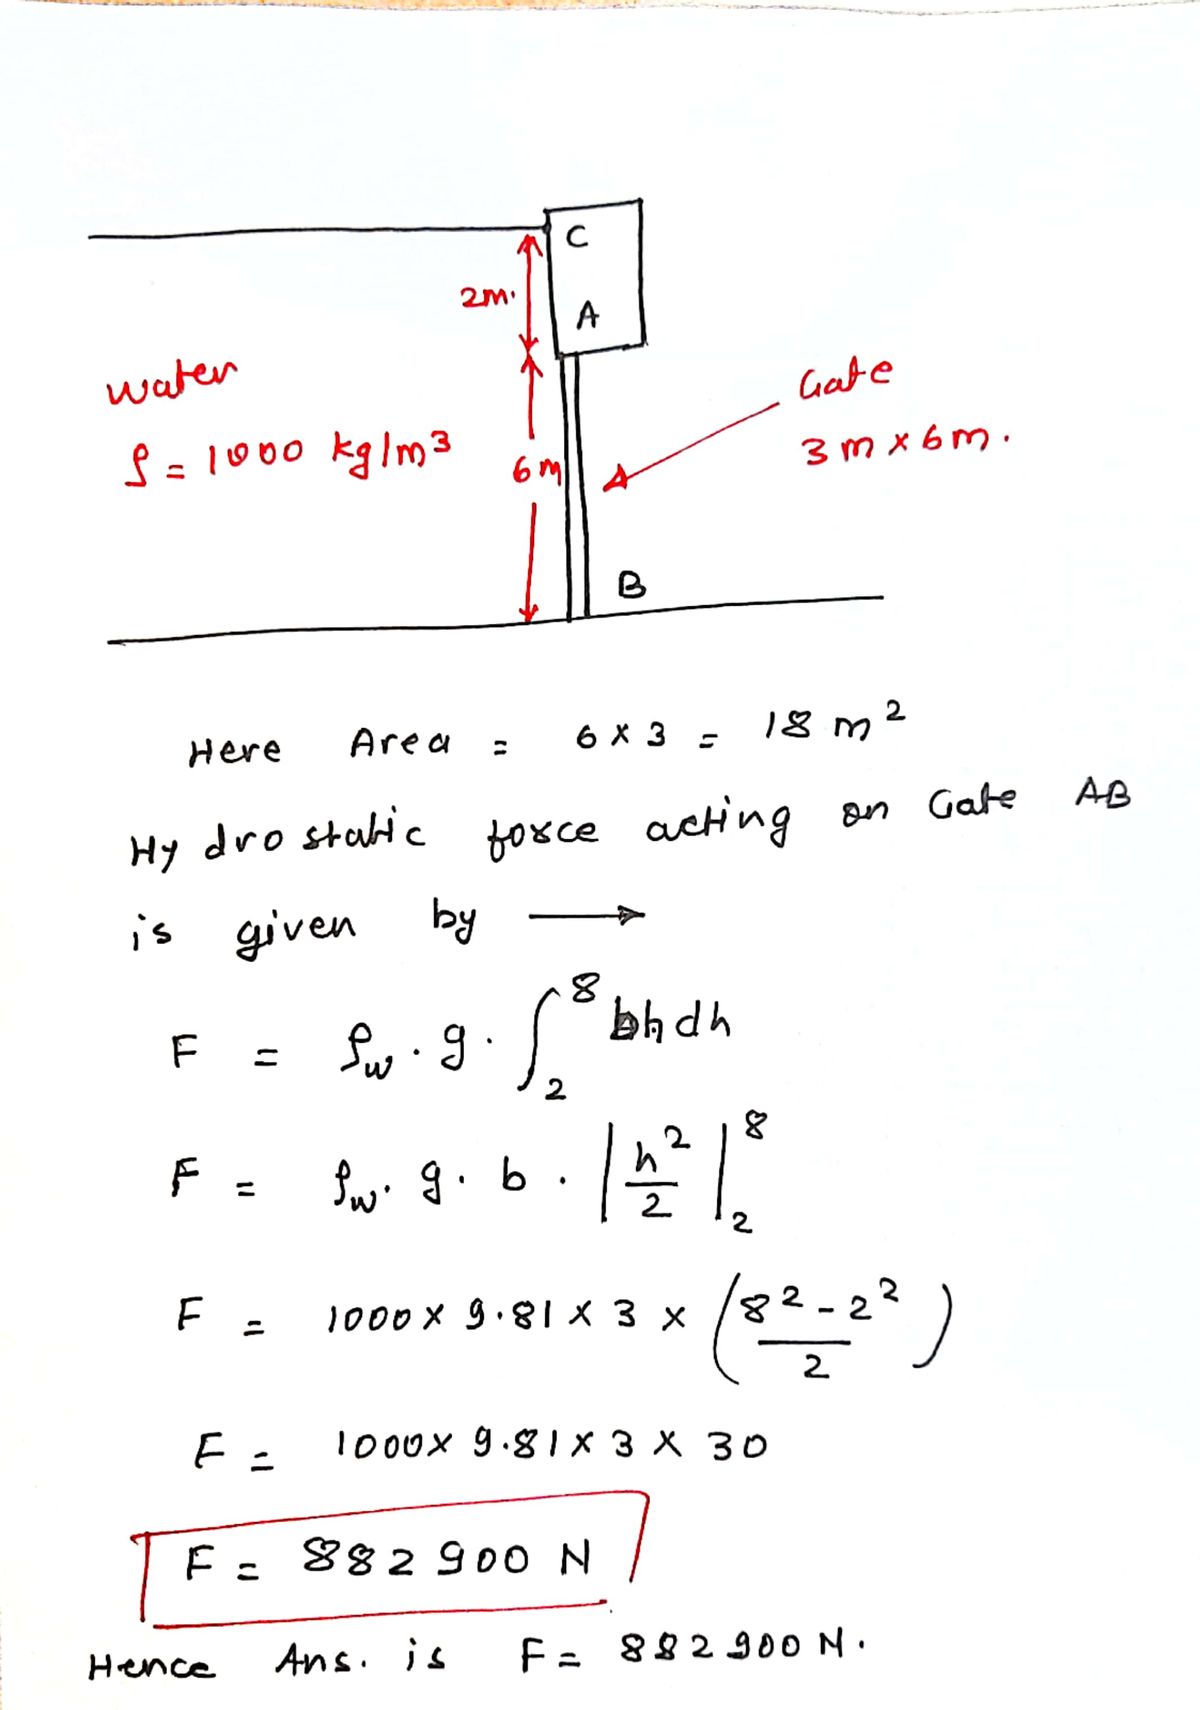 C
2m.
A
water
ρ = 1000 kg/m³
6m
Gate
3m x 6m.
B
Here Area = 6 x 3 = 18 m²
Hydrostatic force acting on Gate AB
is given by →
F = ρw . g . ∫₂⁸ bh dh
F = ρw . g . b . |h²/2|₂⁸
F = 1000 x 9.81 x 3 x (8² - 2² / 2)
F = 1000 x 9.81 x 3 x 30
F = 882900 N
Hence Ans. is F = 882900 N.